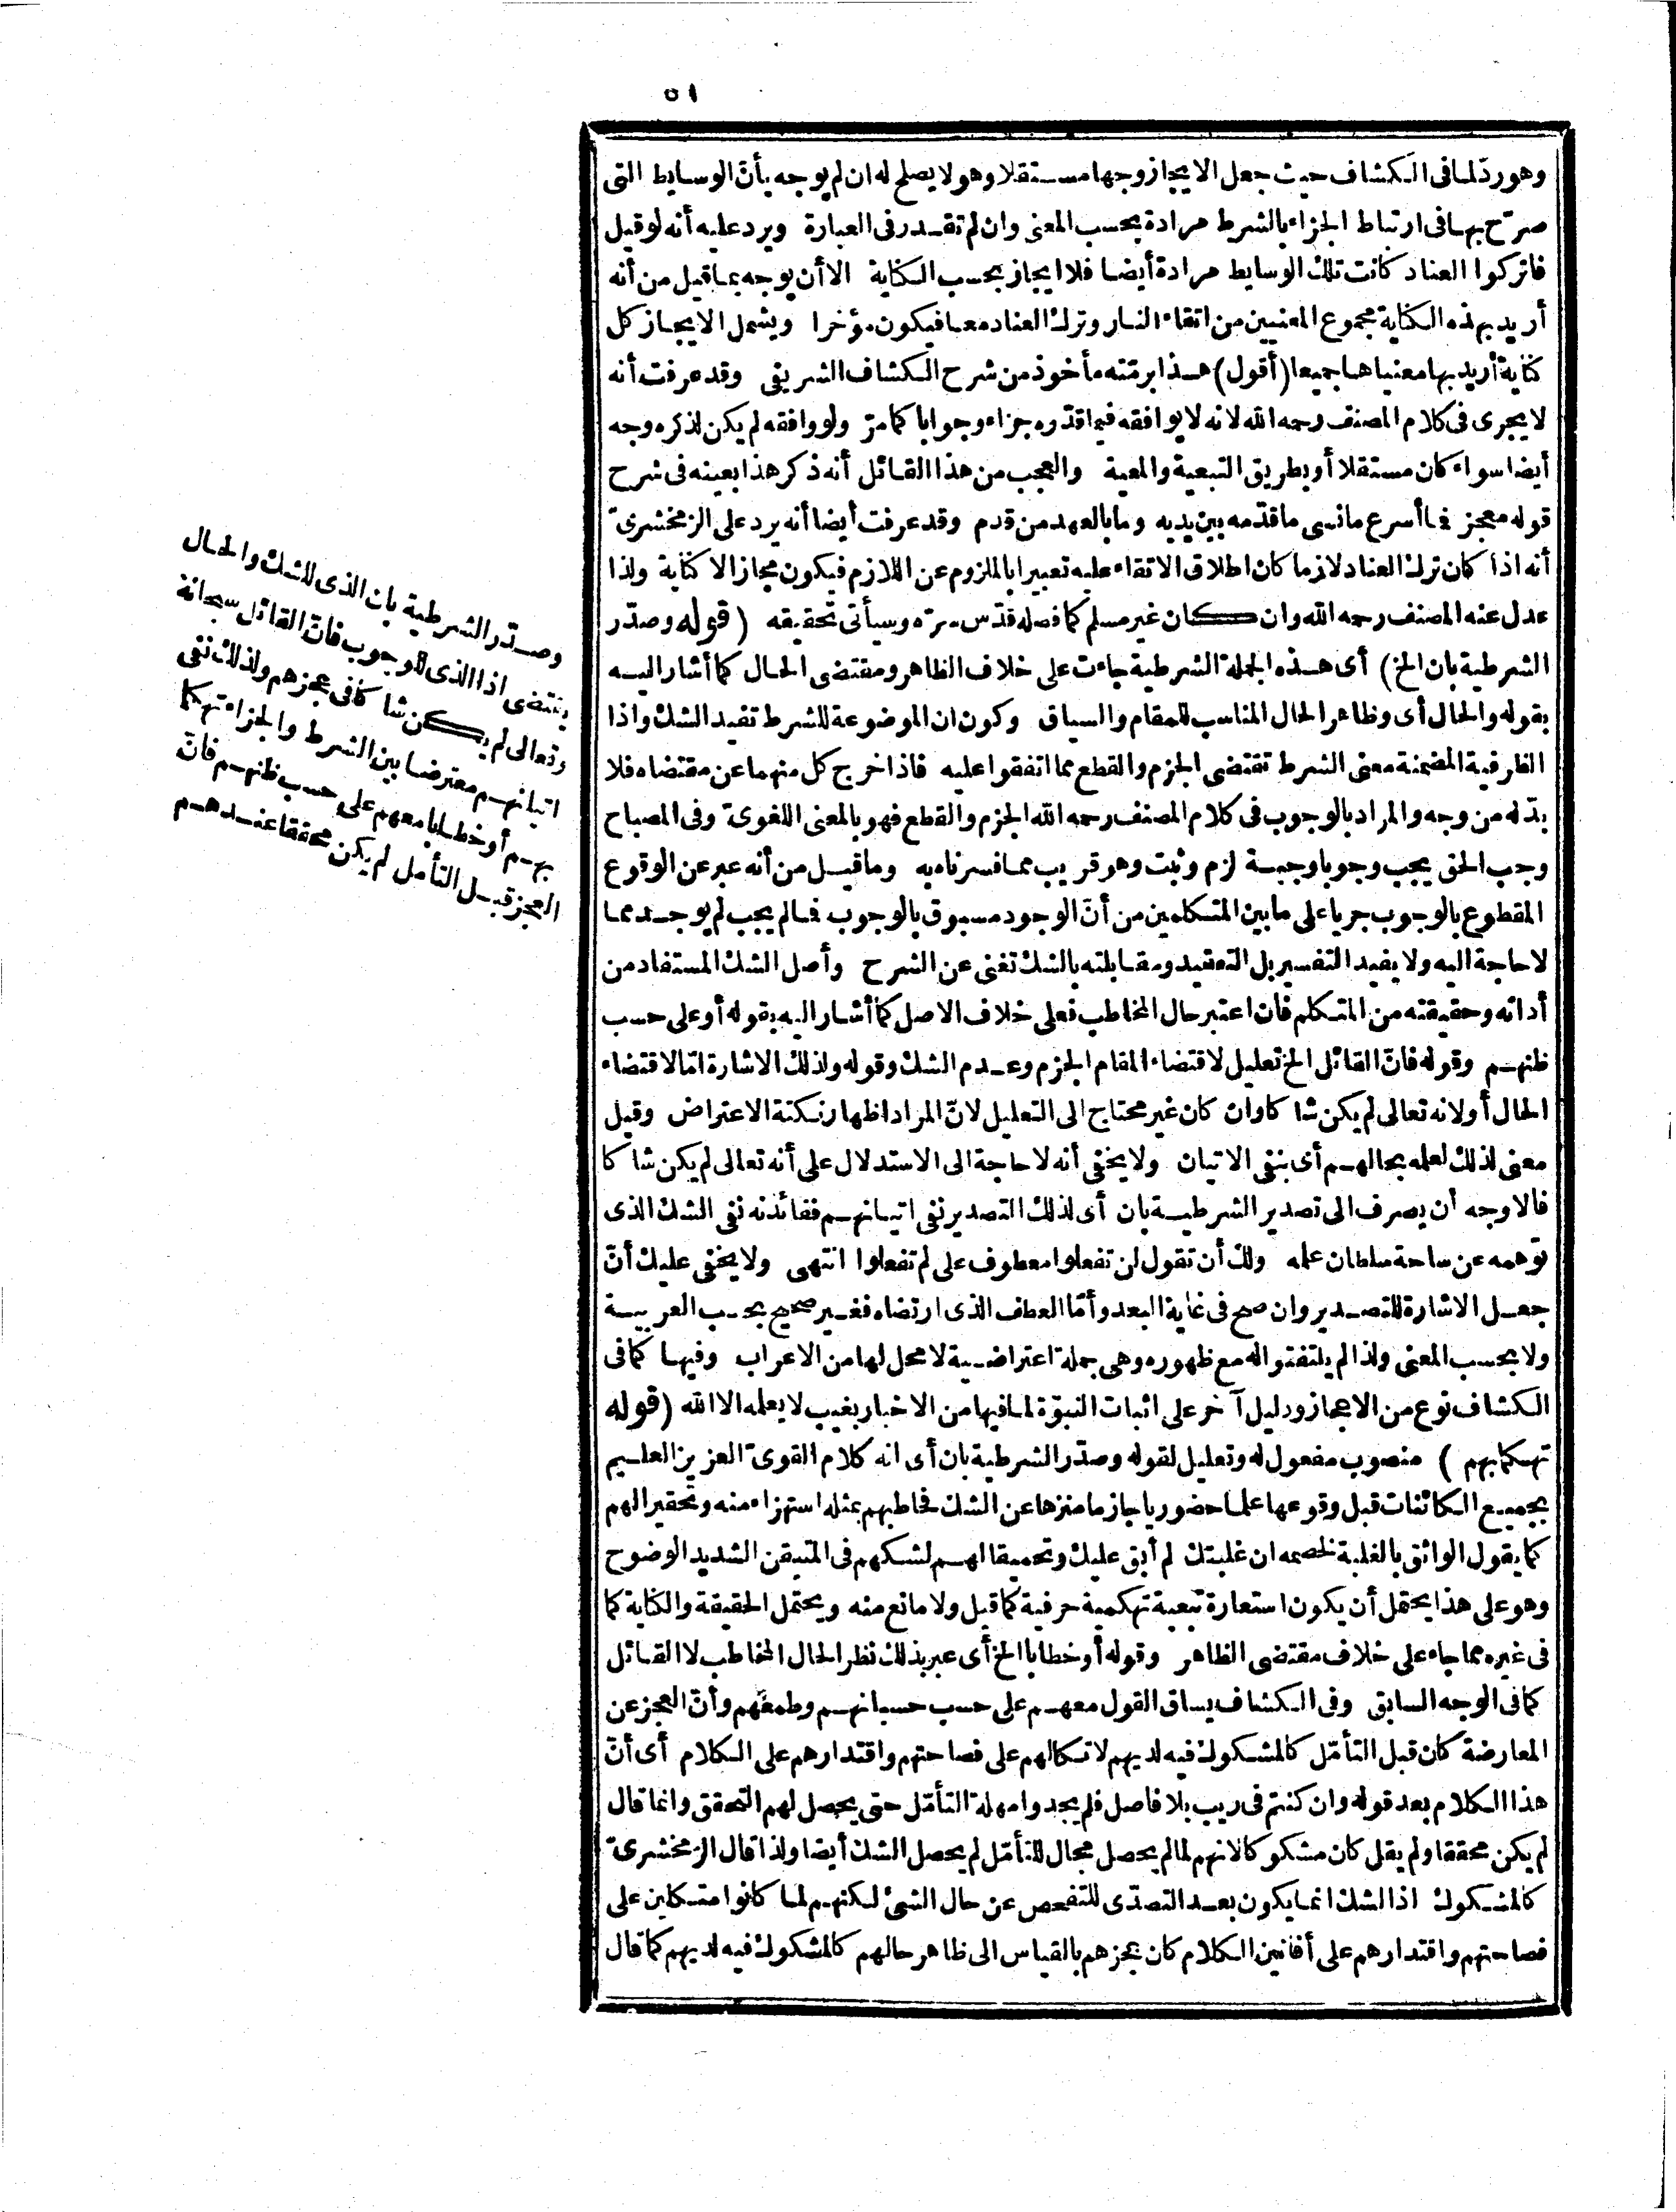 ٥١
وهو ردّ لما فى الكشاف حيث جعل الايجاز وجها مستقلا وهو لا يصلح له ان لم يوجه بأنّ الوسايط التى
صرّح بها فى ارتباط الجزاء بالشرط مرادة بحسب المعنى وان لم تقدر فى العبارة ويرد عليه أنه لو قيل
فاتركوا العناد كانت تلك الوسايط مرادة أيضا فلا ايجاز بحسب الكناية الا أن يوجه بما قيل من أنه
أريد بهذه الكناية مجموع المعنيين من اتقاء النار وترك العناد معا فيكون مؤخرا ويشمل الايجاز كل
كناية أريد بها معنياها جميعا (أقول) هذا برمّته مأخوذ من شرح الكشاف الشريفى وقد عرفت أنه
لا يجرى فى كلام المصنف رحمه الله لانه لا يوافقه فيما قدّوه جزاء وجوابا كما مرّ ولو وافقه لم يكن لذكره وجه
أيضا سواء كان مستقلا أو بطريق التبعية والمعية والعجب من هذا القائل أنه ذكر هذا بعينه فى شرح
قوله معجز فما أسرع ما نسى ما قدّمه بين يديه وما بالعهد من قدم وقد عرفت أيضا أنه يرد على الزمخشرىّ
أنه اذا كان ترك العناد لازما كان اطلاق الاتقاء عليه تعبيرا بالملزوم عن اللازم فيكون مجازا لا كناية ولذا
عدل عنه المصنف رحمه الله وان كان غير مسلم كما فصله قدّس سرّه وسيأتى تحقيقه (قوله وصدّر
الشرطية بان الخ) أى هذه الجملة الشرطية جاءت على خلاف الظاهر ومقتضى الحال كما أشار اليه
بقوله والحال أى وظاهر الحال المناسب للمقام والسياق وكون ان الموضوعة للشرط تفيد الشك واذا
الظرفية المضمنة معنى الشرط تقتضى الجزم والقطع مما اتفقوا عليه فاذا خرج كل منهما عن مقتضاه فلا
بدّ له من وجه والمراد بالوجوب فى كلام المصنف رحمه الله الجزم والقطع فهو بالمعنى اللغوىّ وفى المصباح
وجب الحق يجب وجوبا وجبة لزم وثبت وهو قريب مما فسرناه به وما قيل من أنه عبر عن الوقوع
المقطوع بالوجوب جريا على ما بين المتكلمين من أنّ الوجود مسبوق بالوجوب فما لم يجب لم يوجد مما
لا حاجة اليه ولا يفيد التفسير بل التعقيد ومقابلته بالشك تغنى عن الشرح وأصل الشك المستفاد من
أداته وحقيقته من المتكلم فان اعتبر حال المخاطب فعلى خلاف الاصل كما أشار اليه بقوله أو على حسب
ظنهم وقوله فانّ القائل الخ تعليل لاقتضاء المقام الجزم وعدم الشك وقوله ولذلك الاشارة امّا لاقتضاء
الحال أو لانه تعالى لم يكن شاكا وان كان غير محتاج الى التعليل لانّ المراد اظهار نكتة الاعتراض وقيل
معنى لذلك لعلمه بحالهم أى بنفى الاتيان ولا يخفى أنه لا حاجة الى الاستدلال على أنه تعالى لم يكن شاكا
فالاوجه أن يصرف الى تصدير الشرطية بان أى لذلك التصدير نفى اتيانهم ففائدته نفى الشك الذى
توهمه عن ساحة سلطان علمه ولك أن تقول لن تفعلوا معطوف على لم تفعلوا انتهى ولا يخفى عليك أنّ
جعل الاشارة للتصدير وان صح فى غاية البعد وأمّا العطف الذى ارتضاه فغير صحيح بحسب العربية
ولا بحسب المعنى ولذا لم يلتفتوا له مع ظهوره وهى جملة اعتراضية لا محل لها من الاعراب وفيها كما فى
الكشاف نوع من الاعجاز ودليل آخر على اثبات النبوّة لما فيها من الاخبار بغيب لا يعلمه الا الله (قوله
تهكما بهم) منصوب مفعول له وتعليل لقوله وصدّر الشرطية بان أى انه كلام القوىّ العزيز العليم
بجميع الكائنات قبل وقوعها علما حضوريا جازما منزها عن الشك فخاطبهم بمثله استهزاء منه وتحقيرا لهم
كما يقول الواثق بالغلبة لخصمه ان غلبتك لم أبق عليك وتحميقا لهم لشكهم فى المتيقن الشديد الوضوح
وهو على هذا يحتمل أن يكون استعارة تبعية تهكمية حرفية كما قيل ولا مانع منه ويحتمل الحقيقة والكناية كما
فى غيره مما جاء على خلاف مقتضى الظاهر وقوله أو خطابا الخ أى عبر بذلك نظرا لحال المخاطب لا القائل
كما فى الوجه السابق وفى الكشاف يساق القول معهم على حسب حسبانهم وطمعهم وأنّ العجز عن
المعارضة كان قبل التأمّل كالمشكوك فيه لديهم لاتكالهم على فصاحتهم واقتدارهم على الكلام أى أنّ
هذا الكلام بعد قوله وان كنتم فى ريب بلا فاصل فلم يجدوا مهلة التأمّل حتى يحصل لهم التحقق وانما قال
لم يكن محققا ولم يقل كان مشكوكا لانهم لما لم يحصل مجال للتأمّل لم يحصل الشك أيضا ولذا قال الزمخشرىّ
كالمشكوك اذا الشك انما يكون بعد التصدّى للتفحص عن حال الشئ لكنهم لما كانوا متكلين على
فصاحتهم واقتدارهم على أفانين الكلام كان عجزهم بالقياس الى ظاهر حالهم كالمشكوك فيه لديهم كما قال
وصدّر الشرطية بان الذى للشك والحال
يقتضى اذا الذى للوجوب فانّ القائل سبحانه
وتعالى لم يكن شاكا فى عجزهم ولذلك نفى
اتيانهم معترضا بين الشرط والجزاء تهكما
بهم أو خطابا معهم على حسب ظنهم فانّ
العجز قبل التأمل لم يكن محققا عندهم